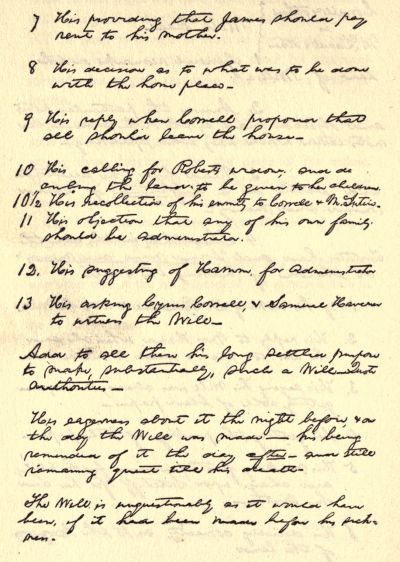 7 His providing that James should pay
rent to his mother.
8 His decision as to what was to be done
with the home place—
9 His reply when Correll proposed that
all should leave the house—
10 His calling for Roberts widow, and de
the land, to be given to her children.
10½ His recollection of his enmity to Correll & McIntire.
11 His objection that any of his own family
should be administrator.
12. His suggesting of Hamon, for administrator
13 His asking Cyrus Correll, & Samuel Haverer
to witness the Will—
Add to all these his long settled purpose
to make, substantially, such a Will—
authorities—
His eagerness about it the night before, & on
the day the Will was made— his being
reminded of it the day after— and still
remaining quiet till his death—
The Will is unquestionably as it would have
been, if it had been made before his sick-
ness.